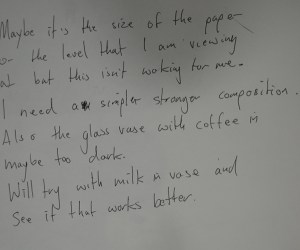 Maybe it's the size of the paper
or the level that I am viewing
at but this isn't working for me.
I need a simpler stronger composition.
Also the glass vase with coffee is
maybe too dark.
Will try with milk in vase and
see if that works better.